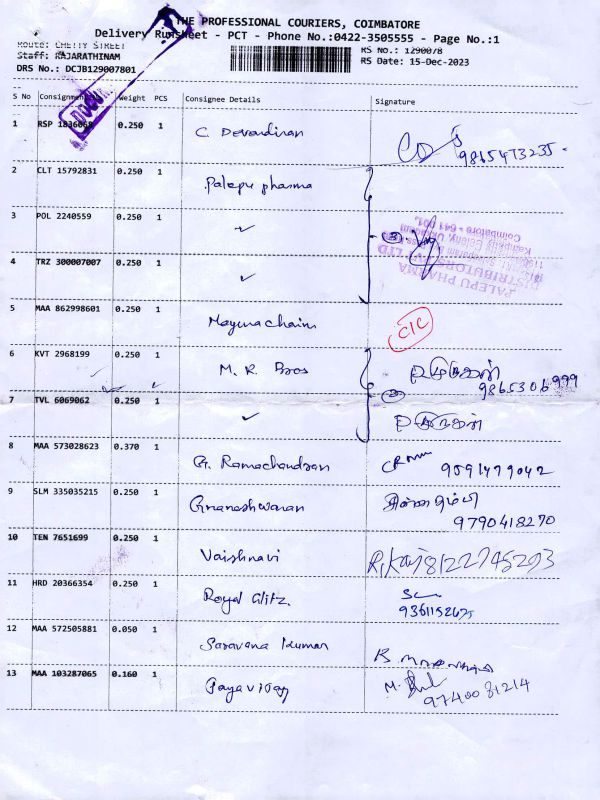 THE PROFESSIONAL COURIERS, COIMBATORE
Delivery Runsheet - PCT - Phone No.:0422-3505555 - Page No.:1
Route: CHETTY STREET
RS No.: 1290078
Staff: RAJARATHINAM
RS Date: 15-Dec-2023
DRS No.: DCJB129007801
S No Consignment Weight PCS Consignee Details Signature
1 RSP 0.250 1 C. Devandiran 9865473235
2 CLT 15792831 0.250 1 Palepu pharma
3 POL 2240559 0.250 1 ✓
4 TRZ 300007007 0.250 1 ✓
PALEPU PHARMA
DISTRIBUTORS PVT LTD
Coimbatore - 641 001.
5 MAA 862998601 0.250 1 C/C
6 KVT 2968199 0.250 1 M. R. Bros 9865306999
7 TVL 6069062 0.250 1 ✓
8 MAA 573028623 0.370 1 G. Ramachandran 9591479042
9 SLM 335035215 0.250 1 Gnaneshwaran 9790418270
10 TEN 7651699 0.250 1 Vaishnavi 8122745293
11 HRD 20366354 0.250 1 Royal Glitz
12 MAA 572505881 0.050 1 Saravana Kumar
13 MAA 103287065 0.160 1 9740081214